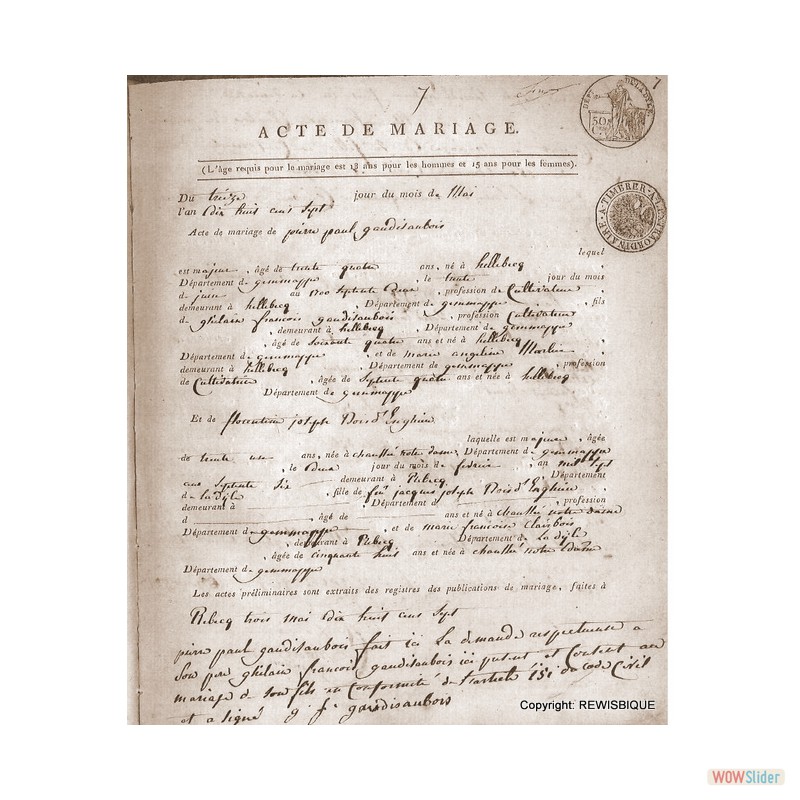 7
7
DEPT DE LA DYLE
50 C.
ACTE DE MARIAGE.
(L'âge requis pour le mariage est 18 ans pour les hommes et 15 ans pour les femmes).
A TIMBRER A L'EXTRAORDINAIRE
Du treize jour du mois de Mai
l'an dix huit cens sept
Acte de mariage de pierre paul gaudisaubois
lequel
est majeur, âgé de trente quatre ans, né à hellebecq,
Département de gemmappe, le trente jour du mois
de juin an 1700 septente Deux, profession de Cultivateur,
demeurant à hellebecq, Département de gemmappe, fils
de ghilain francois gaudisaubois, profession Cultivateur
, demeurant à hellebecq, Département de gemmappe
, âgé de soixante quatre ans et né à hellebecq,
Département de gemmappe, et de marie angeline
demeurant à hellebecq, Département de gemmappe, profession
de Cultivateur, âgée de septente quatre ans et née à hellebecq
Département de gemmappe
Et de florentine joseph Noir d'Enghien
laquelle est majeure, âgée
de trente une ans, née à chaussée notre dame, Département de gemmappe
, le Deux jour du mois de février, an mil sept
cens septente six demeurant à Rebecq Département
de la dyle, fille de feu jacques joseph Noir d'Enghien,
demeurant à Département d profession
d , âgé de ans et né à chaussée notre dame
Département de gemmappe, et de marie francoise Claisbois
, demeurant à Rebecq Département de La dyle
, âgée de cinquante huit ans et née à chaussée notre Dame
Département de gemmappe
Les actes préliminaires sont extraits des registres des publications de mariage, faites à
Rebecq trois mai dix huit cens sept
pierre paul gaudisaubois fait ici La demande respectueuse a
Son pere ghilain francois gaudisaubois ici présent et Consent au
mariage de son fils en Conformité de l'article 151 du code Civil
et a signé g. f. gaudisaubois
Copyright: REWISBIQUE
WOWSlider